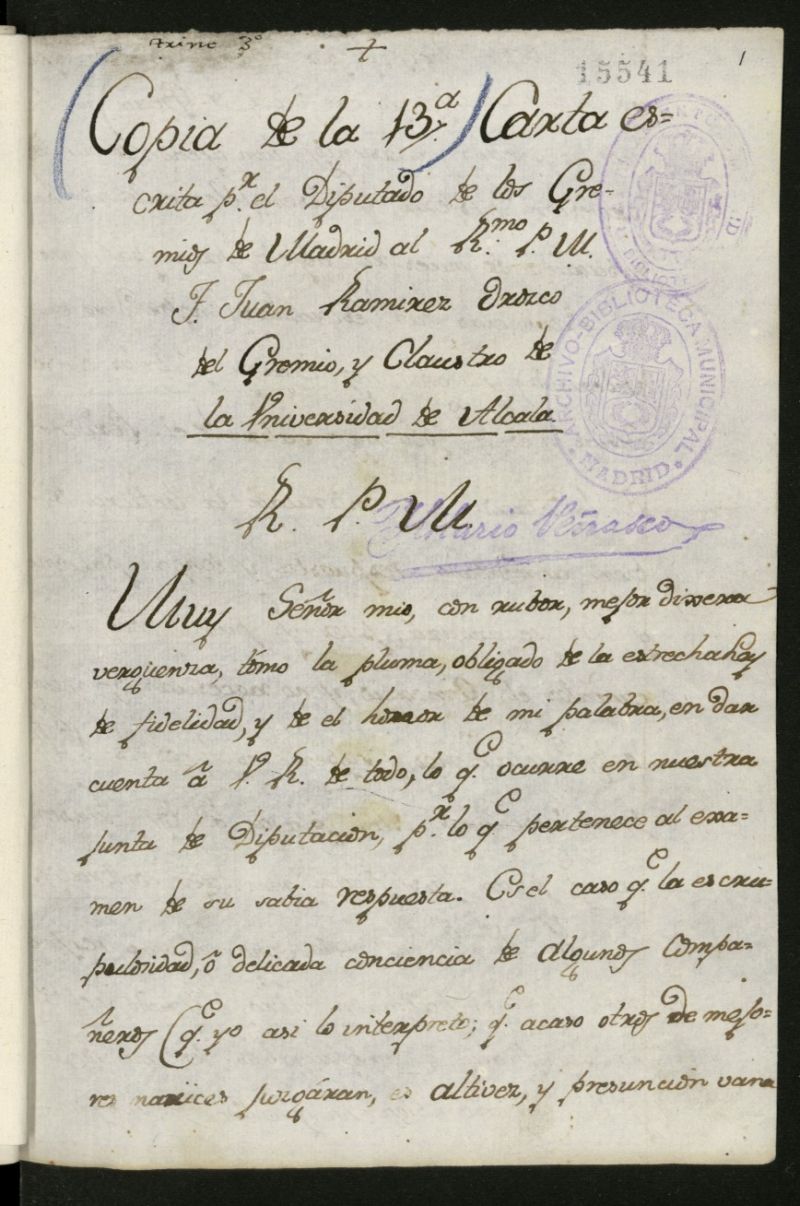 +
15541
1
Copia de la 13.ª Carta es=
crita p.r el Diputado de los Gre-
mios de Madrid al R.mo P. M.
F. Juan Ramirez Orozco
del Gremio, y Claustro de
la Vniversidad de Alcala.
ARCHIVO-BIBLIOTECA MUNICIPAL
· MADRID ·
R. P. M.
Muy Señor mio, con rubor, mejor dixera
verguenza, tomo la pluma, obligado de la estrecha ley
de fidelidad, y de el honor de mi palabra, en dar
cuenta â V. R. de todo, lo q.e ocurre en nuestra
junta de Diputacion, p.r lo q.e pertenece al exa=
men de su sabia respuesta. Es el caso q.e la escru=
pulosidad, ô delicada conciencia de algunos Compa=
ñeros (q.e yo asi lo interpreto; q.e acaso otros de mejo=
res narices juzgáran, es altivez, y presuncion vana